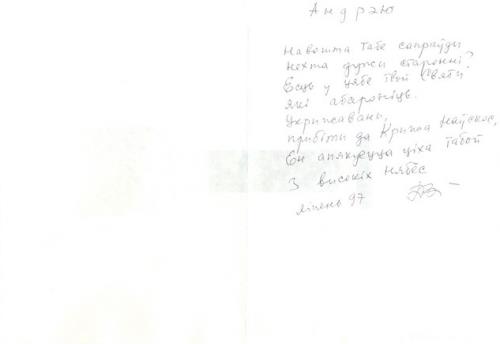 Андрэю
Навошта табе сапраўды
нехта дужы старонні?
Ёсць у цябе твой Святы
які абароніць.
Укрыжаваны,
прыбіты да Крыжа наўскос,
Ён апякуецца ціха табой
З высокіх нябёс
ліпень 97